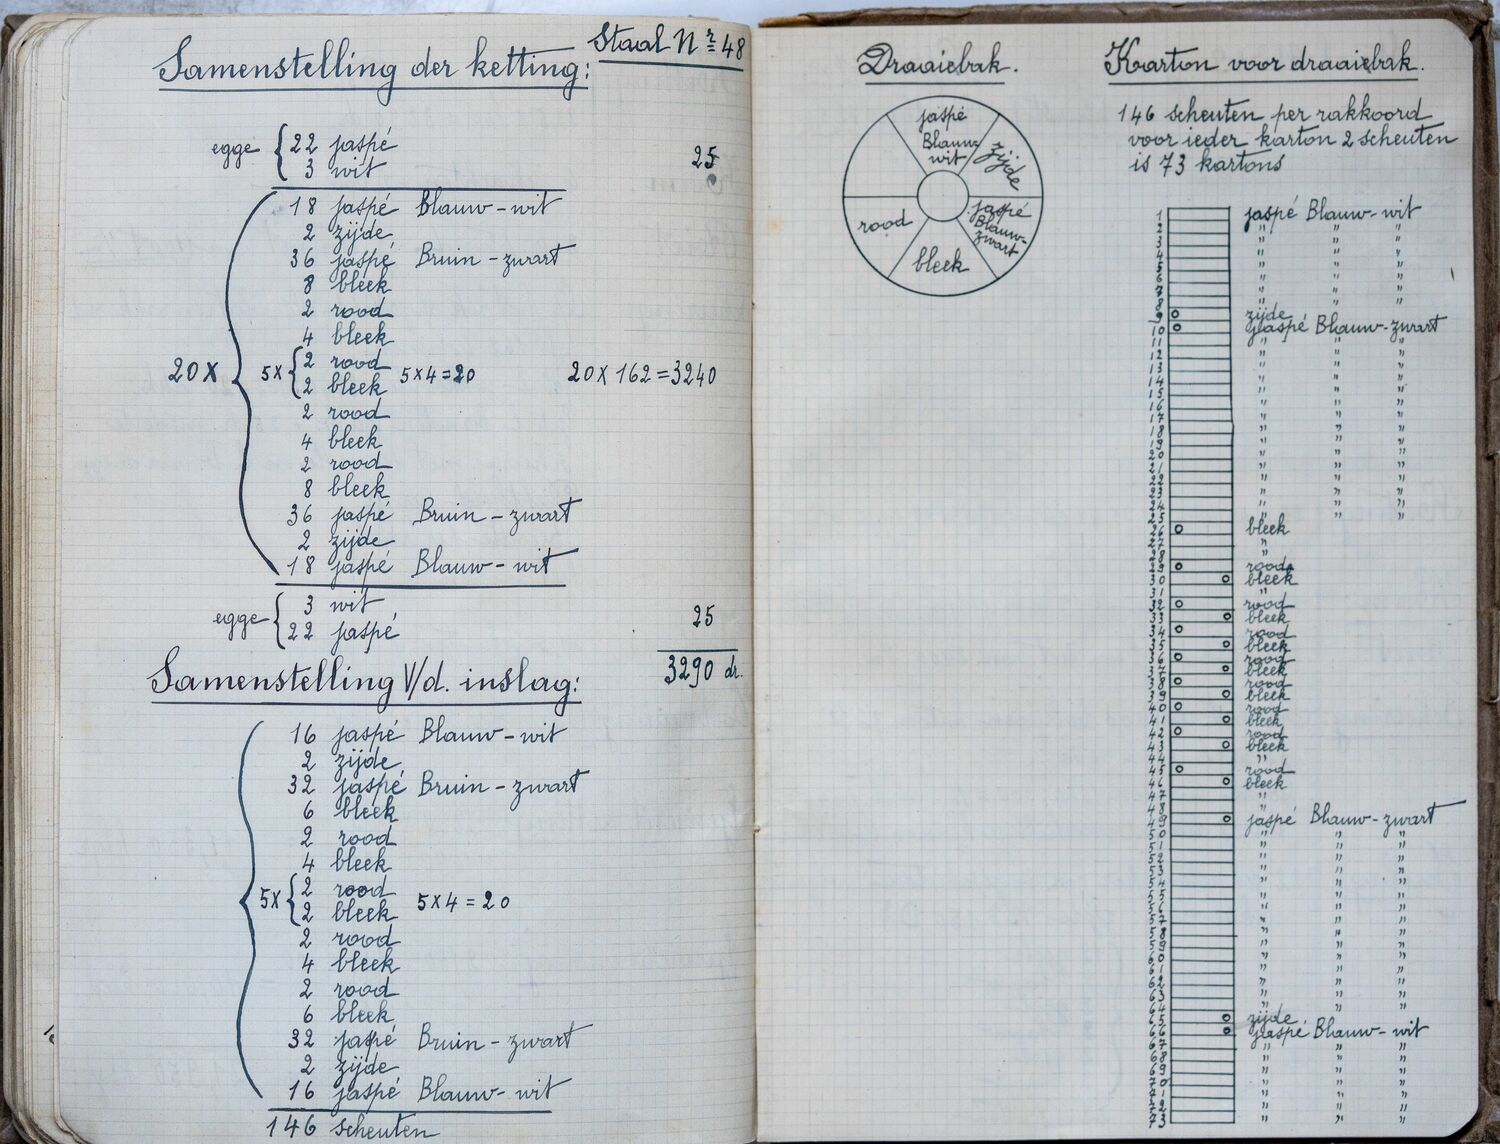 Staal Nr 48
Samenstelling der ketting:
egge { 22 jaspé
3 wit
25
18 jaspé Blauw-wit
2 zijde
36 jaspé Bruin-zwart
8 bleek
2 rood
4 bleek
20X
5X { 2 rood
2 bleek 5x4=20
20X162=3240
2 rood
4 bleek
2 rood
8 bleek
36 jaspé Bruin-zwart
2 zijde
18 jaspé Blauw-wit
egge { 3 wit
22 jaspé
25
3290 dr.
Samenstelling V/d. inslag:
16 jaspé Blauw-wit
2 zijde
32 jaspé Bruin-zwart
6 bleek
2 rood
4 bleek
5X { 2 rood
2 bleek 5x4=20
2 rood
4 bleek
2 rood
6 bleek
32 jaspé Bruin-zwart
2 zijde
16 jaspé Blauw-wit
146 scheuten
Draaiebak.
jaspé
Blauw
wit
zijde
jaspé
Blauw-
zwart
bleek
rood
Karton voor draaiebak.
146 scheuten per rakkoord
voor ieder karton 2 scheuten
is 73 kartons
1 jaspé Blauw-wit
2 " " "
3 " " "
4 " " "
5 " " "
6 " " "
7 " " "
8 " " "
9 zijde
10 jaspé Blauw-zwart
11 " " "
12 " " "
13 " " "
14 " " "
15 " " "
16 " " "
17 " " "
18 " " "
19 " " "
20 " " "
21 " " "
22 " " "
23 " " "
24 " " "
25 " " "
26 bleek
27 "
28 "
29 rood
30 bleek
31 "
32 rood
33 bleek
34 rood
35 bleek
36 rood
37 bleek
38 rood
39 bleek
40 rood
41 bleek
42 rood
43 bleek
44 "
45 rood
46 bleek
47 "
48 "
49 jaspé Blauw-zwart
50 " " "
51 " " "
52 " " "
53 " " "
54 " " "
55 " " "
56 " " "
57 " " "
58 " " "
59 " " "
60 " " "
61 " " "
62 " " "
63 " " "
64 " " "
65 zijde
66 jaspé Blauw-wit
67 " " "
68 " " "
69 " " "
70 " " "
71 " " "
72 " " "
73 " " "